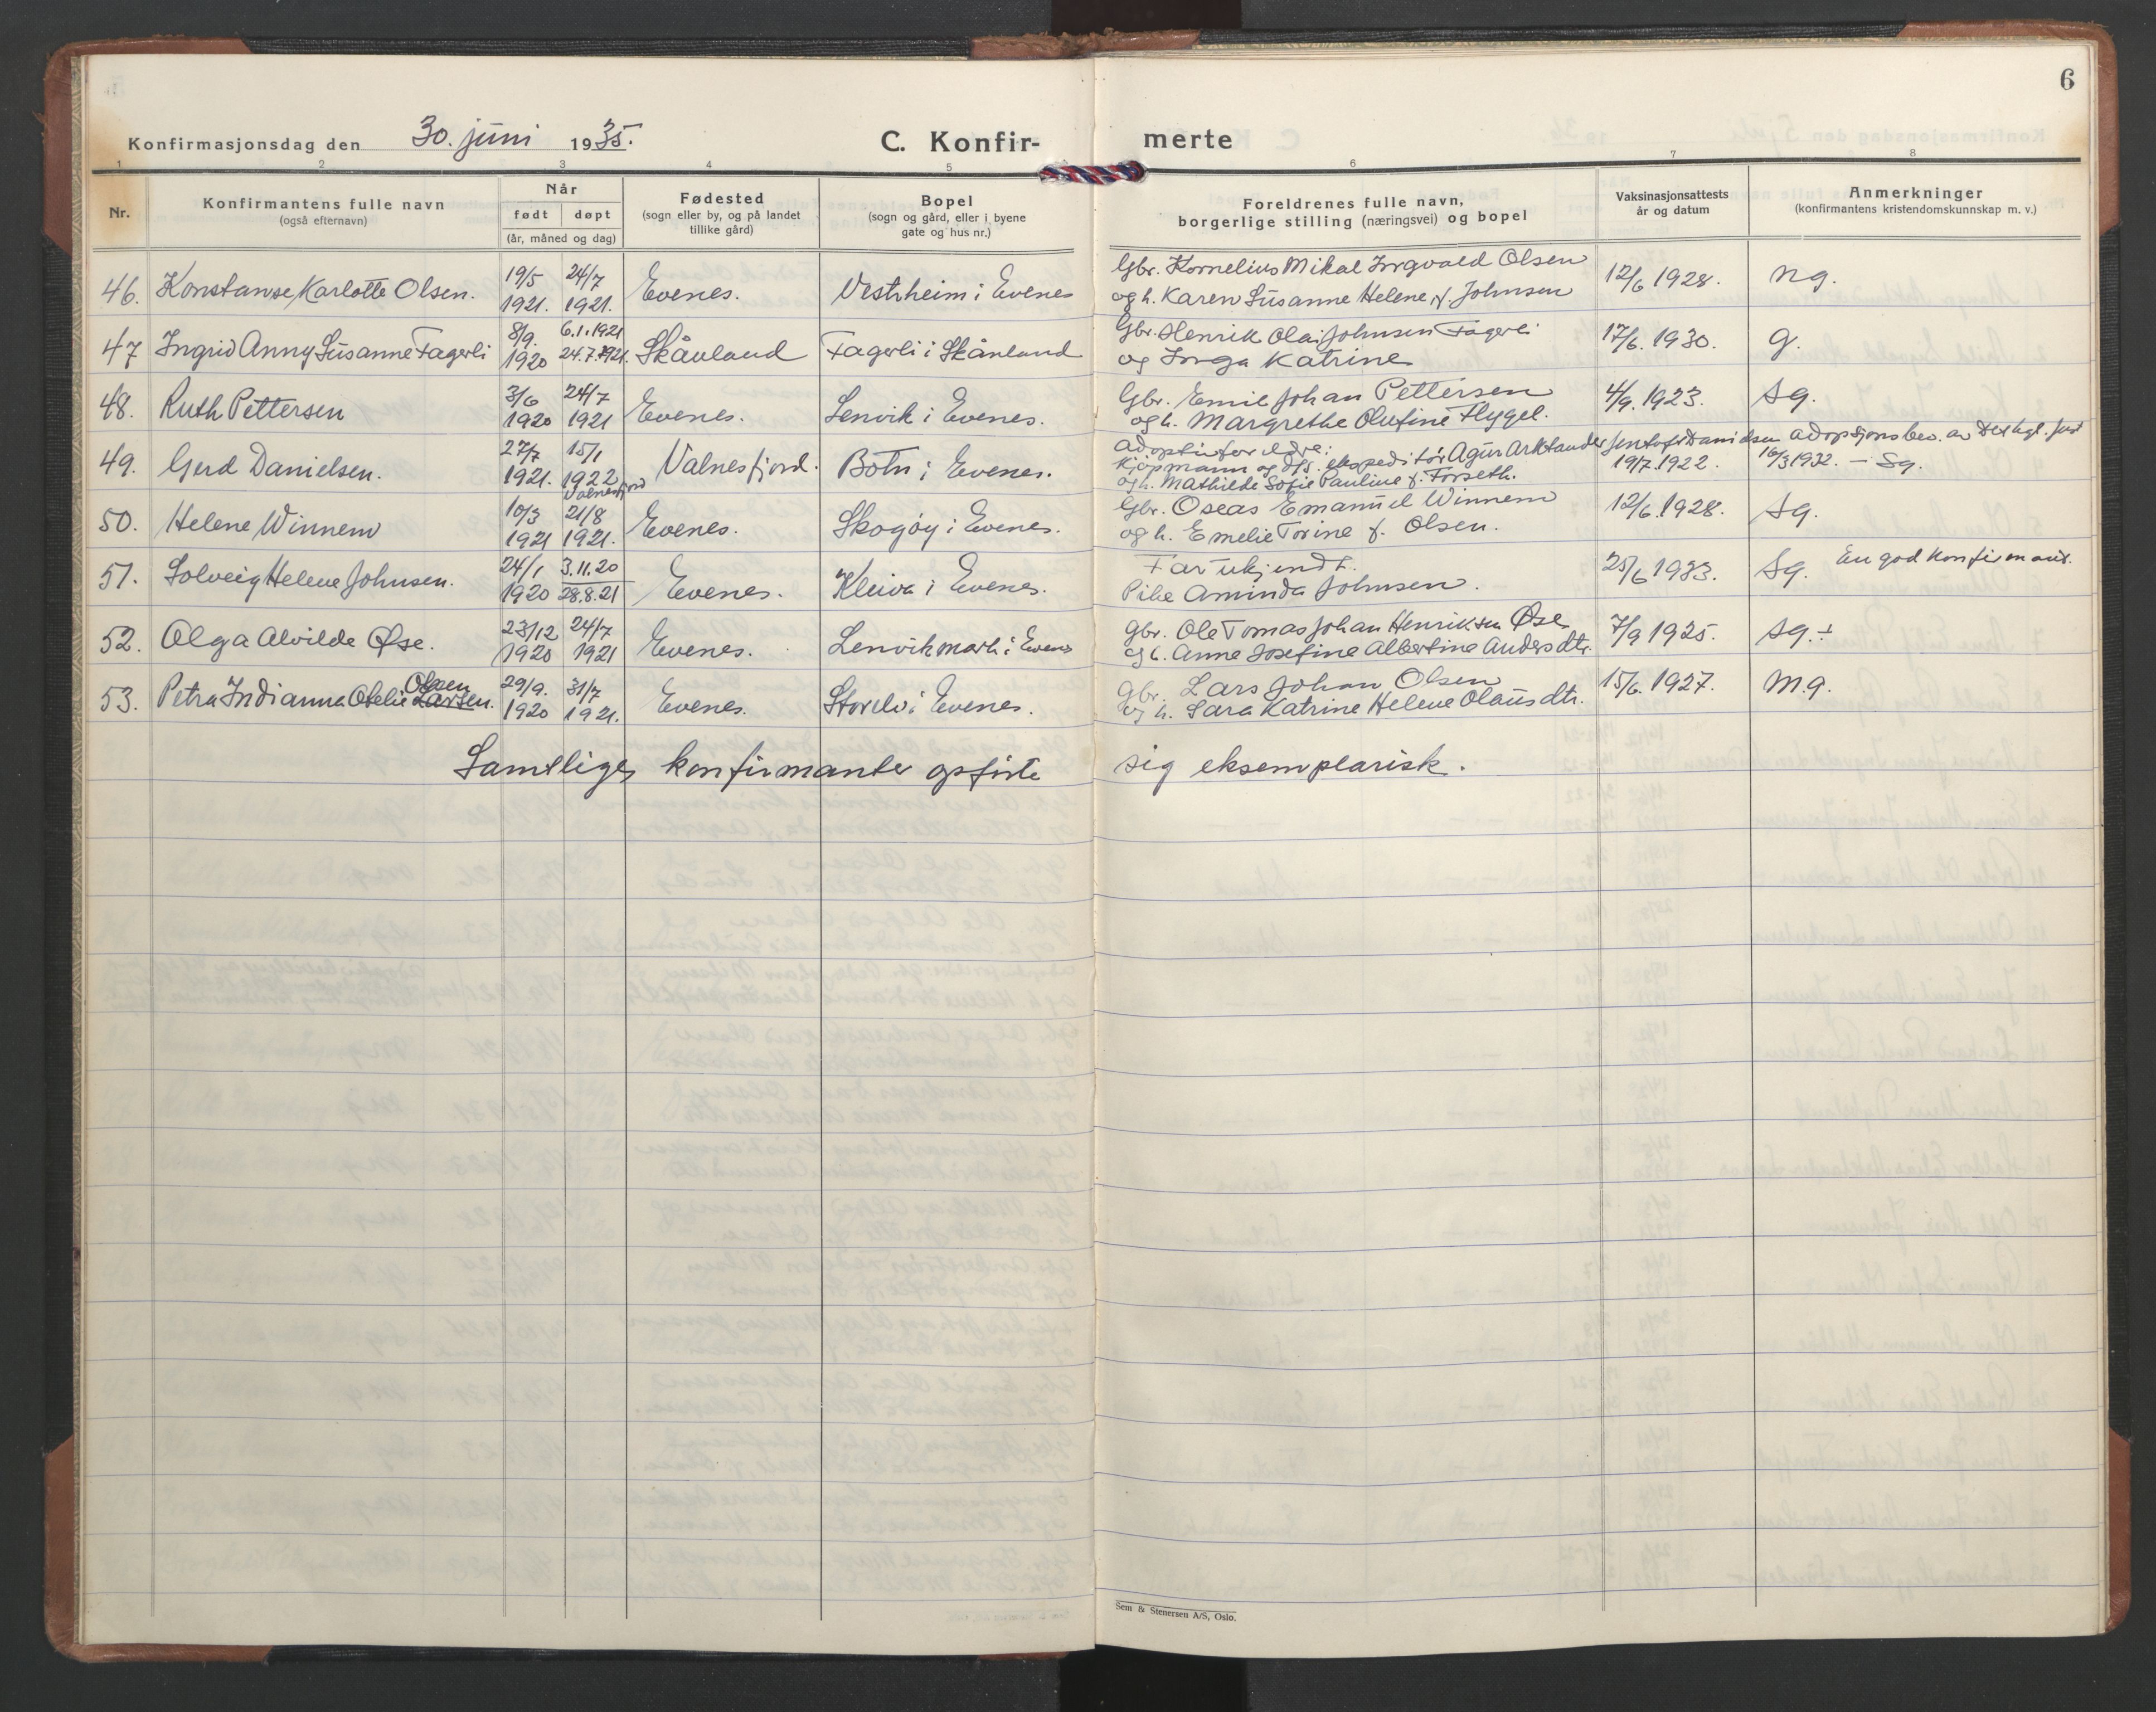 6
Konfirmasjonsdag den 30. juni 1935. C. Konfir- merte
1 2 3 4 5 6 7 8
Nr.
Konfirmantens fulle navn
(også efternavn)
Når
født døpt
(år, måned og dag)
Fødested
(sogn eller by, og på landet
tillike gård)
Bopel
(sogn og gård, eller i byene
gate og hus nr.)
Foreldrenes fulle navn,
borgerlige stilling (næringsvei) og bopel
Vaksinasjonsattests
år og datum
Anmerkninger
(konfirmantens kristendomskunnskap m. v.)
46. Konstanse Karlotte Olsen. 19/5 1921. 24/7 1921. Evenes. Vestrheim i Evenes
Gbr. Kornelius Mikal Ingvald Olsen
og h. Karen Susanne Helene f. Johnsen
12/6 1928. ng.
47 Ingrid Anny Susanne Fagerli 8/9. 1920 6.1.1921 24.7.1921. Skånland Fagerli i Skånland
Gbr. Henrik Olai Johnsen Fagerli
og Inga Katrine
17/6. 1930. g.
48. Ruth Pettersen 3/6 1920 24/7 1921 Evenes. Lenvik i Evenes.
Gbr. Emil Johan Pettersen
og h. Margrethe Olufine Flygel.
4/9. 1923. sg.
49. Gerd Danielsen. 27/7 1921. 15/1 1922 Valnesfjord Valnesfjord. Botn i Evenes.
Adoptivforeldre:
Kjøpmann og d/s. ekspeditør Agur Arktander Danielsen
og h. Mathilde Sofie Pauline f. Forseth.
19/7 1922. adopsjonsbev. av Det kgl. Just
16/3 1932. — Sg.
50. Helene Winnem 10/3 1921 21/8 1921. Evenes. Skogøy i Evenes.
Gbr. Oseas Emanuel Winnem
og h. Emelie Torine f. Olsen.
12/6. 1928. sg.
51. Solveig Helene Johnsen. 24/1 1920 3.11.20 28.8.21 Evenes. Kleiva i Evenes.
Far ukjendt.
Pike Aminda Johnsen.
25/6 1933. Sg. En god konfirmant.
52. Olga Alvilde Øse. 23/12 1920 24/7 1921 Evenes. Lenvikmark i Evenes
Gbr. Ole Tomas Johan Henriksen Øse
og h. Anne Josefine Albertine Andersdtr.
7/9 1925. sg.÷
53. Petra Indianna Otelie Larsen. Olsen 29/9. 1920 31/7 1921. Evenes. Storelv i Evenes.
Gbr. Lars Johan Olsen
og h. Sara Katrine Helene Olausdtr.
15/6. 1927. m.g.
Samtlige konfirmanter opførte sig eksemplarisk.
Sem & Stenersen A/S, Oslo.